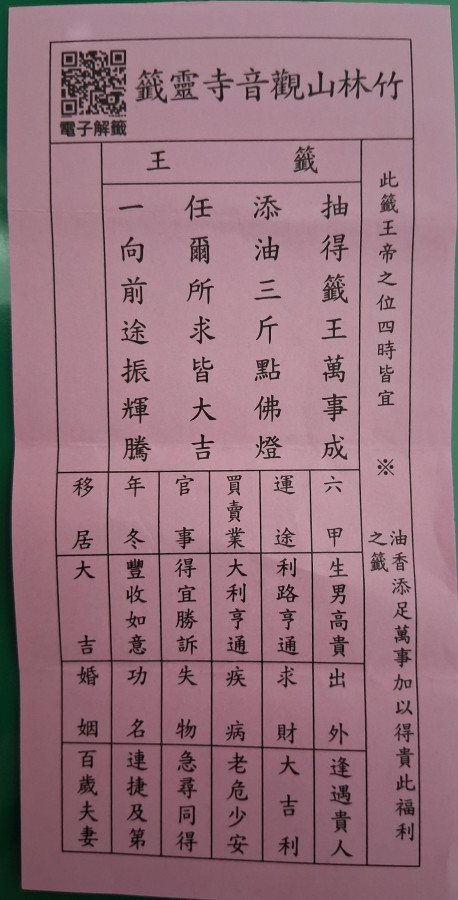 竹林山觀音寺靈籤
電子解籤
籤王
此籤王帝之位四時皆宜 ※ 油香添足萬事加以得貴此福利之籤
抽得籤王萬事成
添油三斤點佛燈
任爾所求皆大吉
一向前途振輝騰
六甲 生男高貴 出外 逢遇貴人
運途 利路亨通 求財 大吉利
買賣業 大利亨通 疾病 老危少安
官事 得宜勝訴 失物 急尋同得
年冬 豐收如意 功名 連捷及第
移居 大吉 婚姻 百歲夫妻